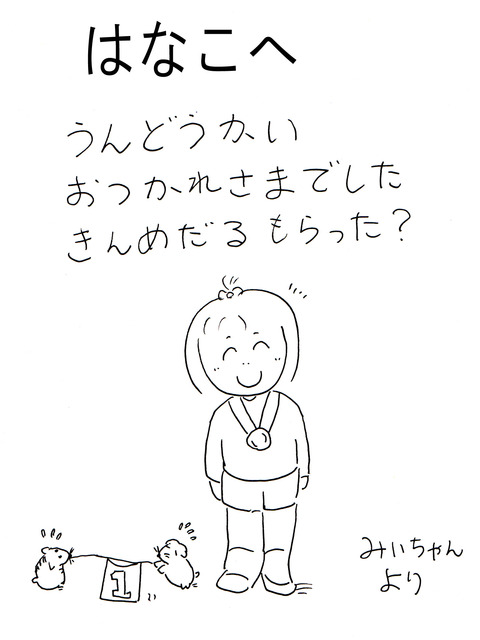 はなこへ
うんどうかい
おつかれさまでした
きんめだるもらった？
1
みいちゃん
より